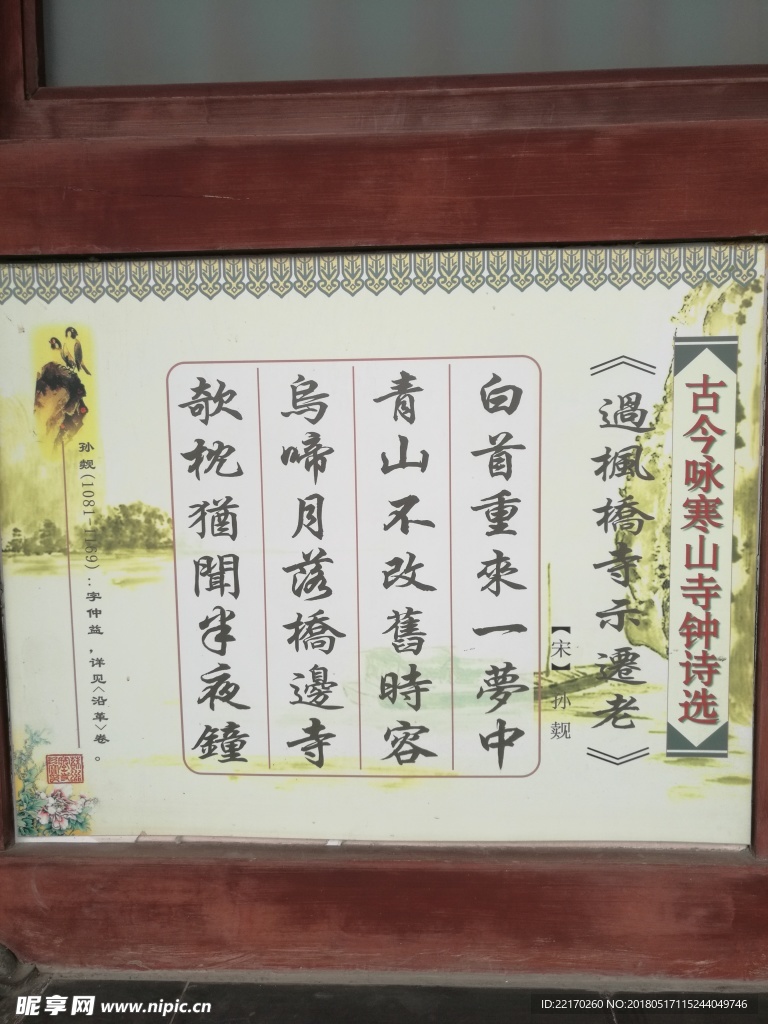 古今咏寒山寺钟诗选
《過楓橋寺示遷老》
【宋】孙觌
白首重來一夢中
青山不改舊時容
烏啼月落橋邊寺
欹枕猶聞半夜鐘
孙觌(1081-1169):字仲益,详见<沿革>卷。
昵享网 www.nipic.cn
ID:22170260 NO:20180517115244049746